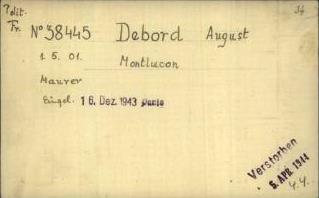 Polit. 34
Fr. No 38445 Debord August
1. 5. 01. Montlucon
Maurer
Eingel. 16. Dez. 1943 Paris
Verstorben
5. APR. 1944
4.4.